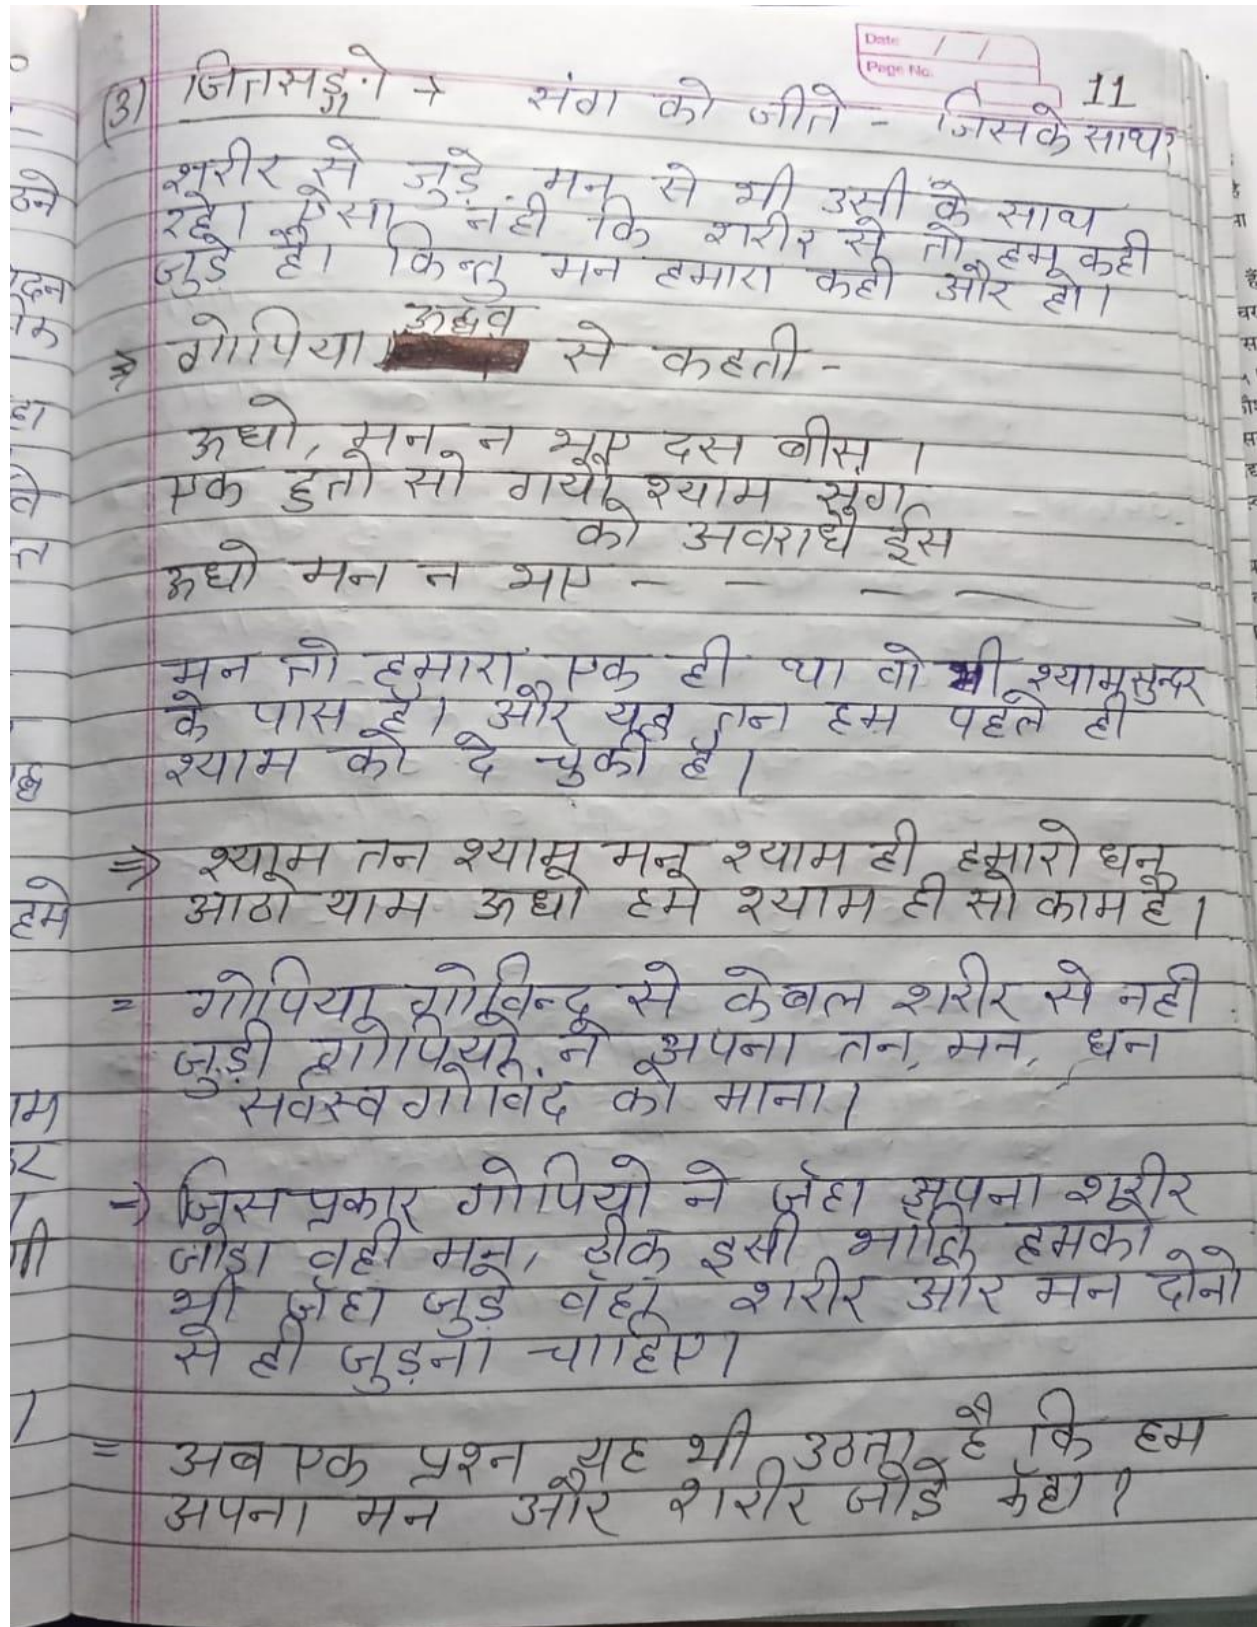 Date / /
Page No.
11
(3) जितसङ्गो → संग को जीते - जिसके साथ
शरीर से जुड़े मन से भी उसी के साथ
रहे। ऐसा नही कि शरीर से तो हम कही
जुडे है। किन्तु मन हमारा कही और हो।
⇒ गोपिया ऊद्धव से कहती -
ऊधो, मन न भए दस बीस।
एक हुतो सो गयो श्याम संग
को अवराधै ईस
ऊधो मन न भए - - - -
मन तो हमारा एक ही था वो भी श्यामसुन्दर
के पास है। और यह तन हम पहले ही
श्याम को दे चुकी है।
⇒ श्याम तन श्याम मन श्याम ही हमारो धन
आठो याम ऊधो हमे श्याम ही सो काम है।
= गोपिया गोविन्द से केबल शरीर से नही
जुड़ी गोपियो ने अपना तन, मन, धन
सर्वस्व गोविंद को माना।
→ जिस प्रकार गोपियो ने जँहा अपना शरीर
जोड़ा वही मन, ठीक इसी भाति हमको
भी जँहा जुड़े वँहा शरीर और मन दोनो
से ही जुड़ना चाहिए।
= अब एक प्रश्न यह भी उठता है कि हम
अपना मन और शरीर जोडे कँहा ?